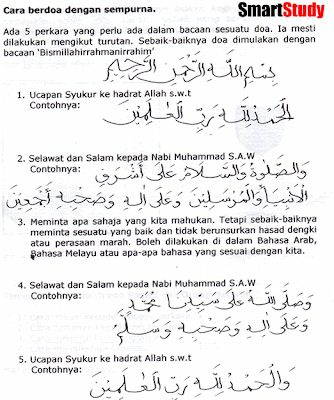 SmartStudy
Cara berdoa dengan sempurna.
Ada 5 perkara yang perlu ada dalam bacaan sesuatu doa. Ia mesti
dilakukan mengikut turutan. Sebaik-baiknya doa dimulakan dengan
bacaan 'Bismillahirrahmanirrahim'
بِسْمِ اللَّهِ الرَّحْمَنِ الرَّحِيْمِ
1. Ucapan Syukur ke hadrat Allah s.w.t
Contohnya:
الْحَمْدُ لِلَّهِ رَبِّ الْعَالَمِيْنَ
2. Selawat dan Salam kepada Nabi Muhammad S.A.W
Contohnya:
وَالصَّلَوةُ وَالسَّلَامُ عَلَى أَشْرَفِ
الْأَنْبِيَآءِ وَالْمُرْسَلِيْنَ وَعَلَى الِهِ وَصَحْبِهِ أَجْمَعِيْنَ
3. Meminta apa sahaja yang kita mahukan. Tetapi sebaik-baiknya
meminta sesuatu yang baik dan tidak berunsurkan hasad dengki
atau perasaan marah. Boleh dilakukan di dalam Bahasa Arab,
Bahasa Melayu atau apa-apa bahasa yang sesuai dengan kita.
4. Selawat dan Salam kepada Nabi Muhammad S.A.W
Contohnya:
وَصَلَّى اللَّهُ عَلَى سَيِّدِنَا مُحَمَّدٍ
وَعَلَى الِهِ وَصَحْبِهِ وَسَلَّمَ
5. Ucapan Syukur ke hadrat Allah s.w.t
Contohnya:
وَالْحَمْدُ لِلَّهِ رَبِّ الْعَالَمِيْنَ